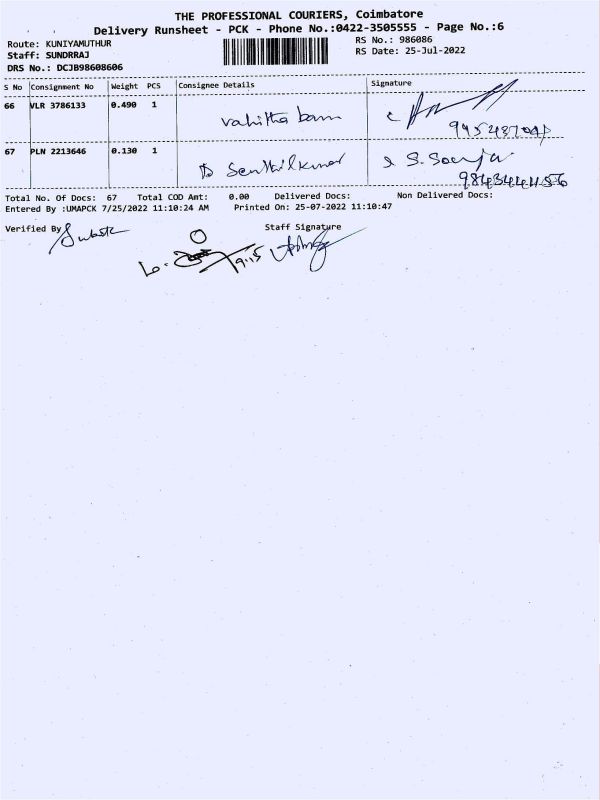 THE PROFESSIONAL COURIERS, Coimbatore
Delivery Runsheet - PCK - Phone No.:0422-3505555 - Page No.:6
Route: KUNIYAMUTHUR
Staff: SUNDRRAJ
DRS No.: DCJB98608606
RS No.: 986086
RS Date: 25-Jul-2022
S No Consignment No Weight PCS Consignee Details Signature
66 VLR 3786133 0.490 1 vahitha banu
67 PLN 2213646 0.130 1 Senthilkumar S. Soorya
9843444456
Total No. Of Docs: 67 Total COD Amt: 0.00 Delivered Docs: Non Delivered Docs:
Entered By :UMAPCK 7/25/2022 11:10:24 AM Printed On: 25-07-2022 11:10:47
Verified By Staff Signature
9:15